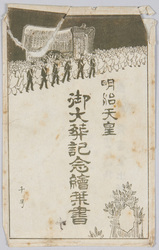 明治天皇
御大葬記念繪葉書